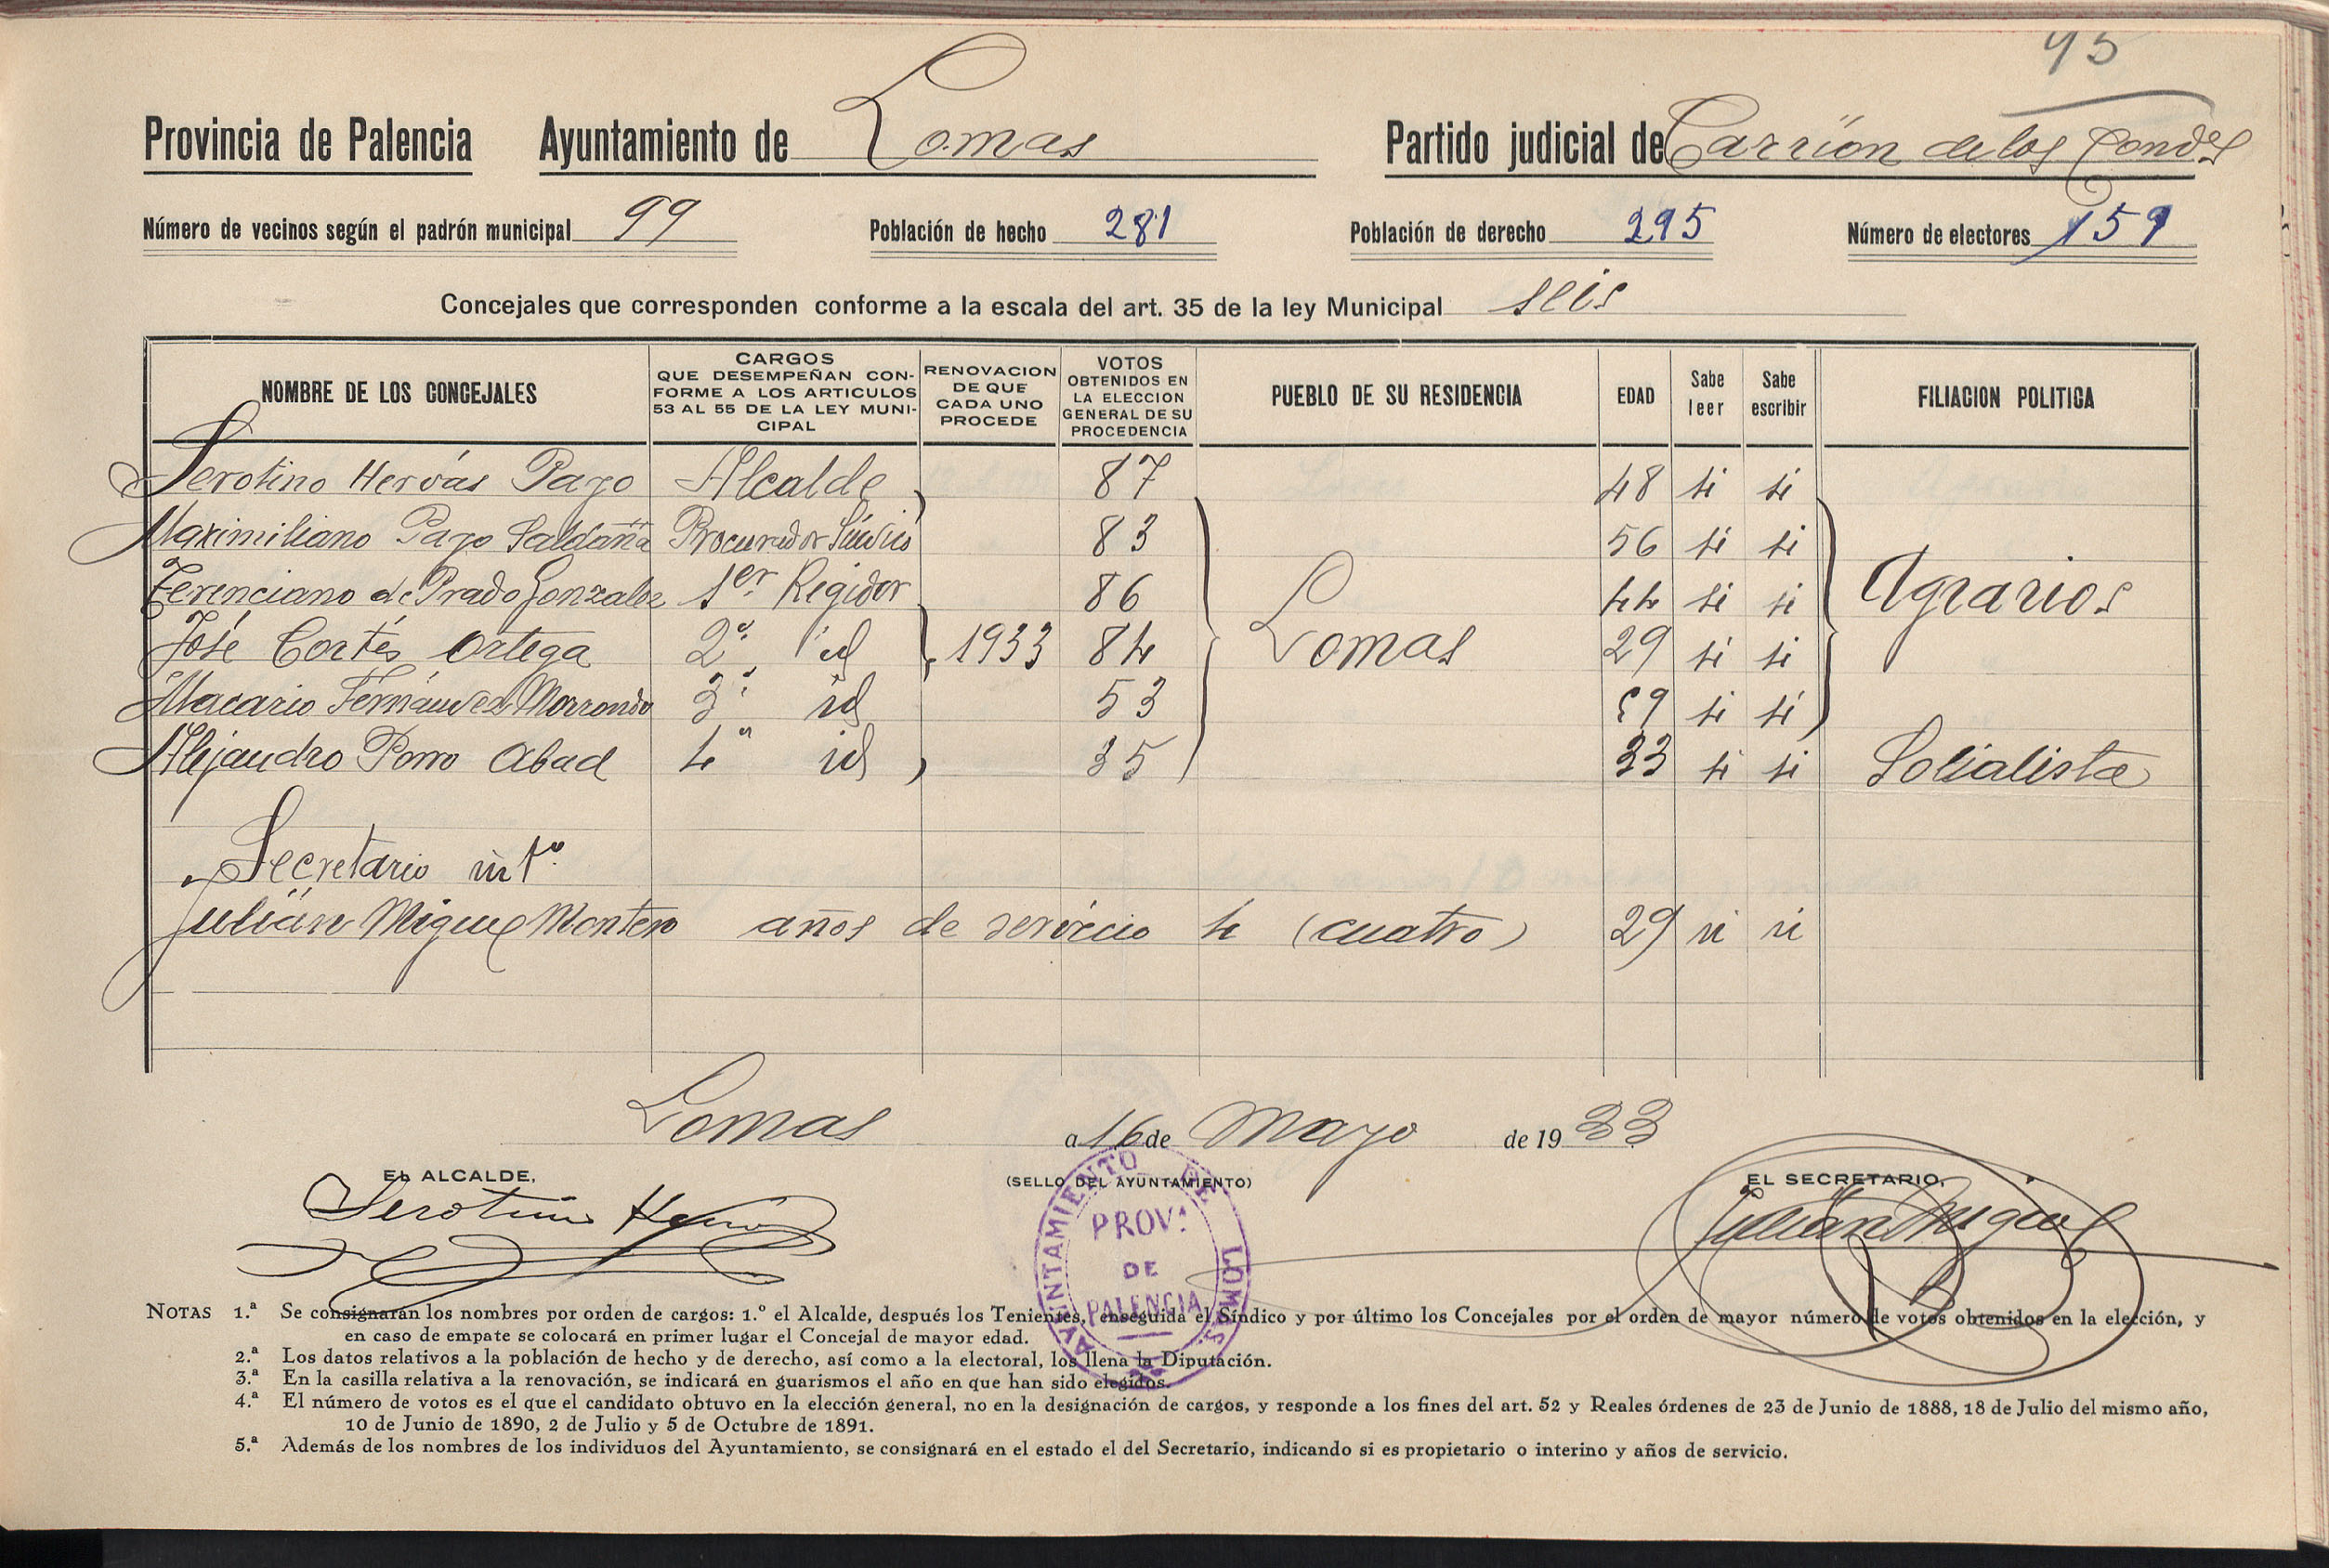 95
Provincia de Palencia Ayuntamiento de Lomas Partido judicial de Carrión de los Condes
Número de vecinos según el padrón municipal 99 Población de hecho 281 Población de derecho 295 Número de electores 159
Concejales que corresponden conforme a la escala del art. 35 de la ley Municipal seis
NOMBRE DE LOS CONCEJALES
CARGOS
QUE DESEMPEÑAN CON-
FORME A LOS ARTICULOS
53 AL 55 DE LA LEY MUNI-
CIPAL
RENOVACION
DE QUE
CADA UNO
PROCEDE
VOTOS
OBTENIDOS EN
LA ELECCION
GENERAL DE SU
PROCEDENCIA
PUEBLO DE SU RESIDENCIA
EDAD
Sabe
leer
Sabe
escribir
FILIACION POLITICA
Serotino Hervás Payo Alcalde 87 48 si si
Maximiliano Payo Saldaña Procurador Síndico 83 56 si si
Terenciano de Prado Gonzalez 1er Regidor 86 44 si si Agrarios
José Cortés Ortega 2º id 1933 84 Lomas 29 si si
Macario Fernández Morrondo 3º id 53 si si
Alejandro Porro Abad 4º id 35 33 si si Socialista
Secretario intº
Julián Miguel Montero años de servicio 4 (cuatro) 29 si si
Lomas a 16 de Mayo de 1933
EL ALCALDE,
(SELLO DEL AYUNTAMIENTO)
EL SECRETARIO,
Serotino Hervás
Julián Miguel
AYUNTAMIENTO DE LOMAS
PROV.ª
DE
PALENCIA
NOTAS 1.ª Se consignarán los nombres por orden de cargos: 1.º el Alcalde, después los Tenientes, enseguida el Síndico y por último los Concejales por el orden de mayor número de votos obtenidos en la elección, y
en caso de empate se colocará en primer lugar el Concejal de mayor edad.
2.ª Los datos relativos a la población de hecho y de derecho, así como a la electoral, los llena la Diputación.
3.ª En la casilla relativa a la renovación, se indicará en guarismos el año en que han sido elegidos.
4.ª El número de votos es el que el candidato obtuvo en la elección general, no en la designación de cargos, y responde a los fines del art. 52 y Reales órdenes de 23 de Junio de 1888, 18 de Julio del mismo año,
10 de Junio de 1890, 2 de Julio y 5 de Octubre de 1891.
5.ª Además de los nombres de los individuos del Ayuntamiento, se consignará en el estado el del Secretario, indicando si es propietario o interino y años de servicio.